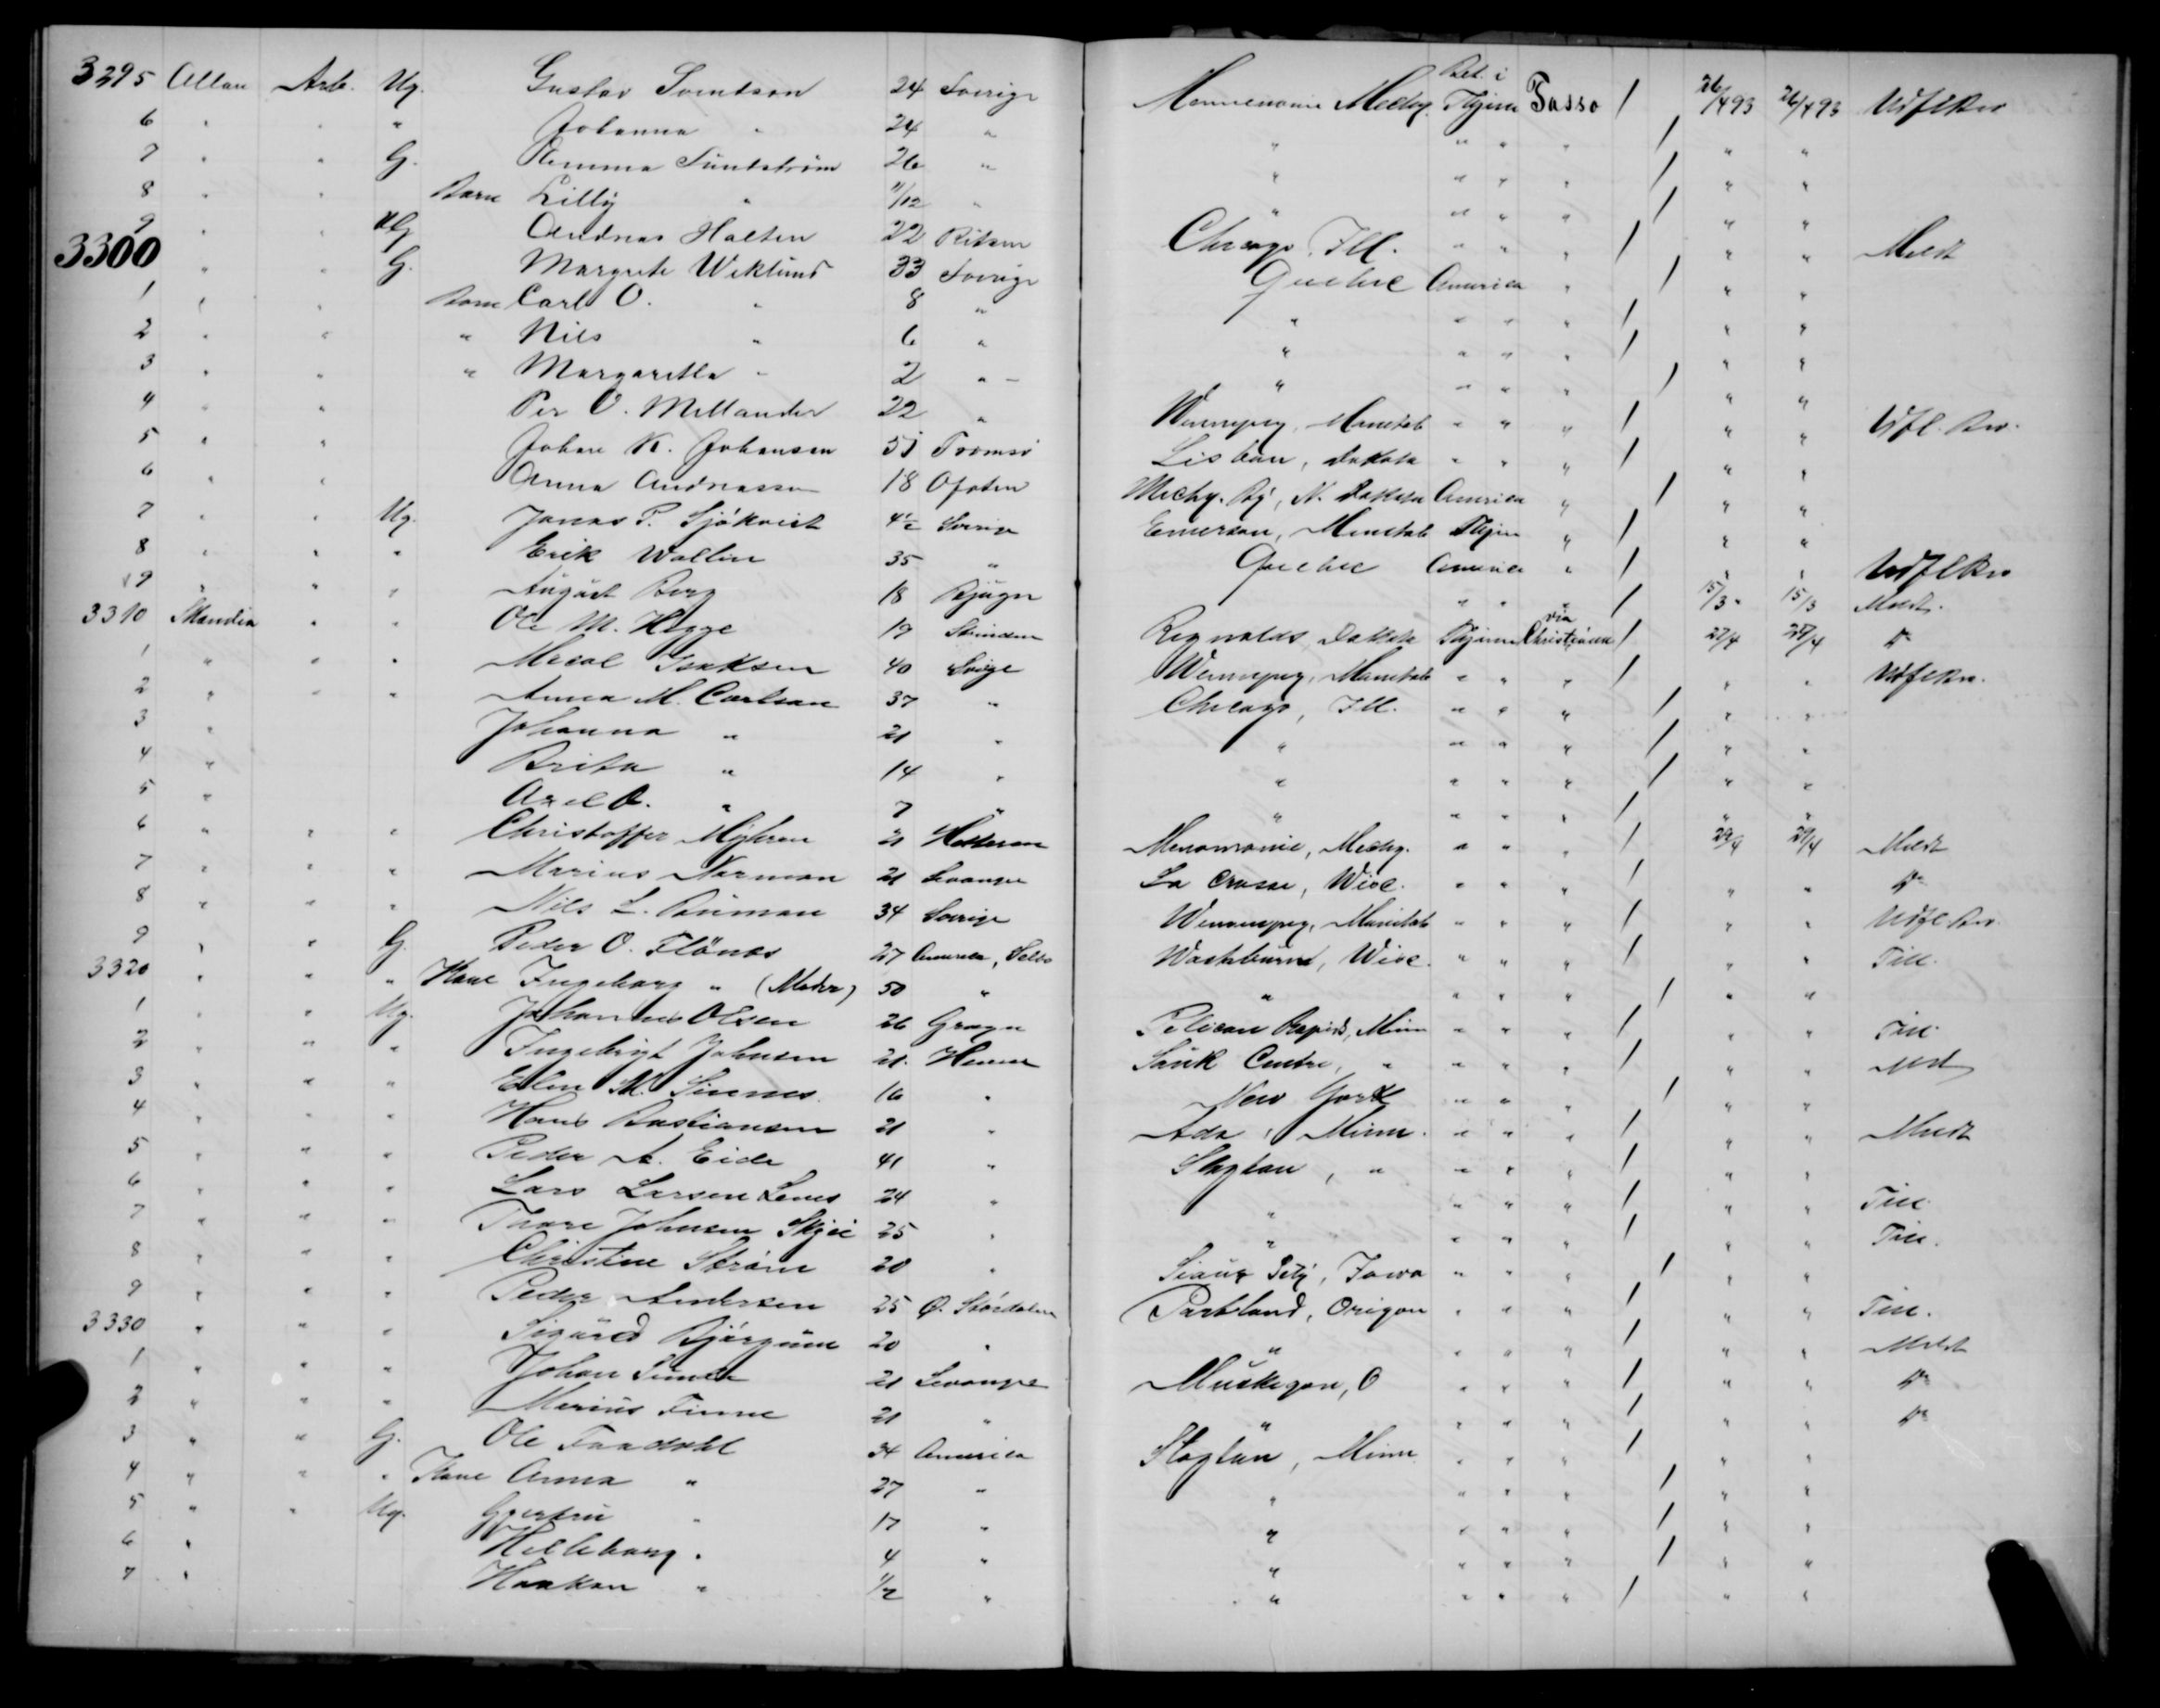 Bet. i
3295 Allan Arb. Ug. Gustav Svendson 24 Sverige Mennemonie Mechg. Thjem Tasso / 26/4 93 26/4 93 Udfl Bev
6 " " " Johanna " 24 " " " " " / " "
7 " " G. Hemma Sundstrøm 26 " " " " " / " "
8 " " Barn Lilly " 11/12 " " " " " / " "
9 " " UG Andreas Halten 22 Ritsem Chicago, Ill. " " " / " " Meldt
3300 " " G. Margrete Wiklund 33 Sverige Quebec America " / " "
1 " " Barn Carl O. " 8 " " " " " / " "
2 " " " Nils " 6 " " " " " / " "
3 " " " Margaretha " 2 " " " " " / " "
4 " " Per O. Mellander 22 " Winnepeg, Manitob " " " / " " Udfl. Bev.
5 " " Johan K. Johansen 51 Tromsø Lisban, Dakota " " " / " "
6 " " Anna Andreassen 18 Ofoten Mechg. By, N. Dakota America " / " "
7 " " Ug. Jonas P. Sjökvist 41/2 Sverige Emerson, Manitob Thjem " / " "
8 " " " Erik Wallin 35 " Quebec America " / " " Udfl Bev
9 " " " August Berg 18 Bjugn " " " / 15/3 15/3 Meldt.
3310 Skandia " " Ole M. Hegge 19 Strinden Reynolds, Dakota Thjem via Christiania / 27/4 27/4 Do
1 " " " Isaksen 40 Sverige Winnepeg, Manitob " " " / " " Udfl Bev.
2 " " " Anna M. Carlson 37 " Chicago, Ill. " " " / " "
3 " Johanna " 21 " " " " " / " "
4 " Brita " 14 " " " " " / " "
5 " Axel A. " 7 " " " " " / " "
6 " " " Christoffer Myhren 21 Hitteren Menomonie, Mechg. " " " / 29/4 29/4 Meldt
7 " " " Marius Norman 21 Levanger La Crosse, Wisc. " " " / " " Do
8 " " " Nils L. Buman 34 Sverige Winnepeg, Manitob " " " / " " Udfl Bev.
9 " " G. Peder O. Flönes 27 America, Selbo Washburn, Wisc. " " " / " " Till.
3320 " " " Kone Ingeborg " (Moder) 50 " " " " " / " "
1 " " Ug. Johannes Olsen 26 Grong Pelican Rapids, Minn " " " / " " Till
2 " " " Ingebrigt Johnsen 21. Hevne Sauk Centre, " " " " / " " Meldt
3 " " " Elen M. Sinnes 16 " New York " " " / " "
4 " " " Hans Bastiansen 21 " Ada, Minn. " " " / " " Meldt
5 " " " Peder A. Eide 41 " Slayton, " " " " / " "
6 " " " Lars Larsen Lenes 24 " " " " " / " " Till
7 " " " Thore Johnsen Skjei 25 " " " " " / " " Till.
8 " " " Christine Strøm 20 " Sioux City, Iowa " " " / " "
9 " " " Peder Andersen 25 Ø. Stördalen Parkland, Origon " " " / " " Till.
3330 " " " Sigurd Bjørgum 20 " " " " " / " " Meldt
1 " " " Johan 21 Levanger Muskegon, O " " " / " " Do
2 " " " Marius Finne 21 " " " " " / " " Do
3 " " G. Ole Faadahl 34 America Slaytun, Minn " " " / " "
4 " " " Kone Anna " 27 " " " " " / " "
5 " " Ug. Gjertru " 17 " " " " " / " "
6 " Hilleborg " 4 " " " " " / " "
7 " Haakon " 1/2 " " " " " / " "